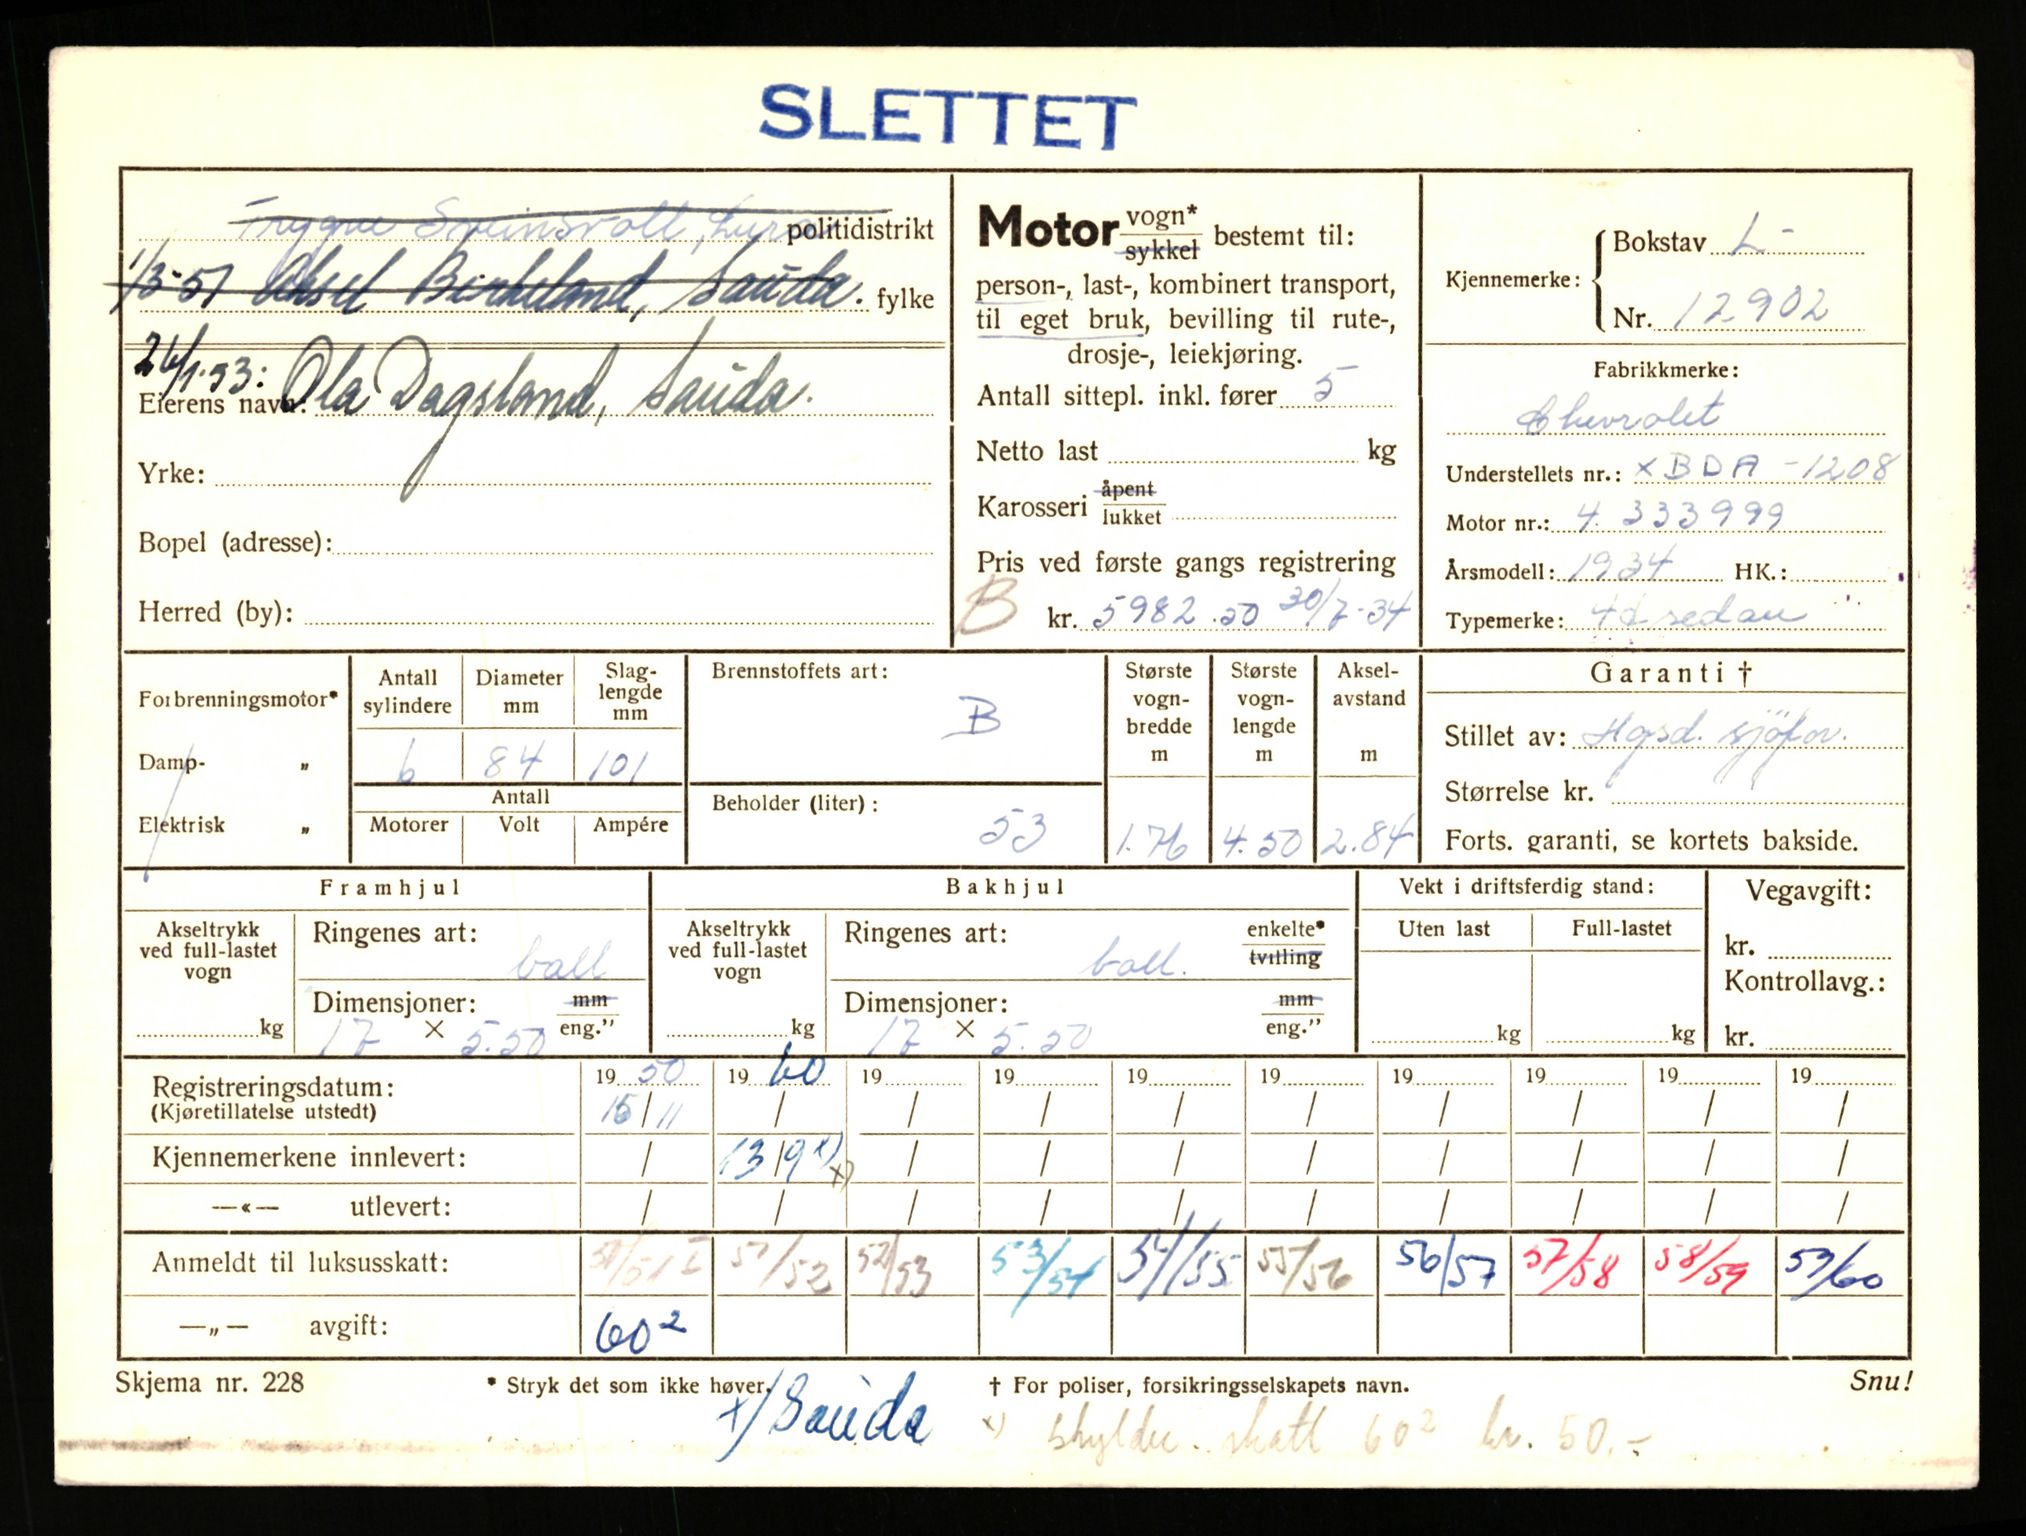 SLETTET
Trygve Sveinsvoll, Lura politidistrikt
1/3-51 Aksel Birkeland, Sauda. fylke
26/1.53: Ola Dagsland, Sauda.
Eierens navn:
Yrke:
Bopel (adresse):
Herred (by):
Motor vogn* sykkel bestemt til:
person-, last-, kombinert transport,
til eget bruk, bevilling til rute-,
drosje-, leiekjøring.
Antall sittepl. inkl. fører 5
Netto last kg
Karosseri åpent lukket
Pris ved første gangs registrering
B kr. 5982.50 30/7-34
Kjennemerke: Bokstav L-
Nr. 12902
Fabrikkmerke:
Chevrolet
Understellets nr.: XBDA-1208
Motor nr.: 4 333999
Årsmodell: 1934 HK.:
Typemerke: 4d sedan
Forbrenningsmotor*
Damp- „
Elektrisk „
Antall sylindere Diameter mm Slaglengde mm
6 84 101
Antall
Motorer Volt Ampére
Brennstoffets art:
B
Beholder (liter):
53
Største vognbredde m Største vognlengde m Akselavstand m
1.76 4.50 2.84
Garanti †
Stillet av: Hgsd. sjöfor.
Størrelse kr.
Forts. garanti, se kortets bakside.
Framhjul
Akseltrykk ved full-lastet vogn
kg
Ringenes art: ball
Dimensjoner: mm
17 × 5.50 eng.”
Bakhjul
Akseltrykk ved full-lastet vogn
kg
Ringenes art: enkelte*
ball. tvilling
Dimensjoner: mm
17 × 5.50 eng.”
Vekt i driftsferdig stand:
Uten last Full-lastet
kg kg
Vegavgift:
kr.
Kontrollavg.:
kr.
Registreringsdatum: 19 50 19 60 19 19 19 19 19 19 19 19
(Kjøretillatelse utstedt) 15/11 / / / / / / / / /
Kjennemerkene innlevert: / 13/9 x) x) / / / / / / / /
—«— utlevert: / / / / / / / / / /
Anmeldt til luksusskatt: 50/51 I 51/52 52/53 53/54 54/55 55/56 56/57 57/58 58/59 59/60
—„— avgift: 60²
Skjema nr. 228 * Stryk det som ikke høver. † For poliser, forsikringsselskapets navn. Snu!
x) Sauda x) skylder skatt 60² kr. 50.-